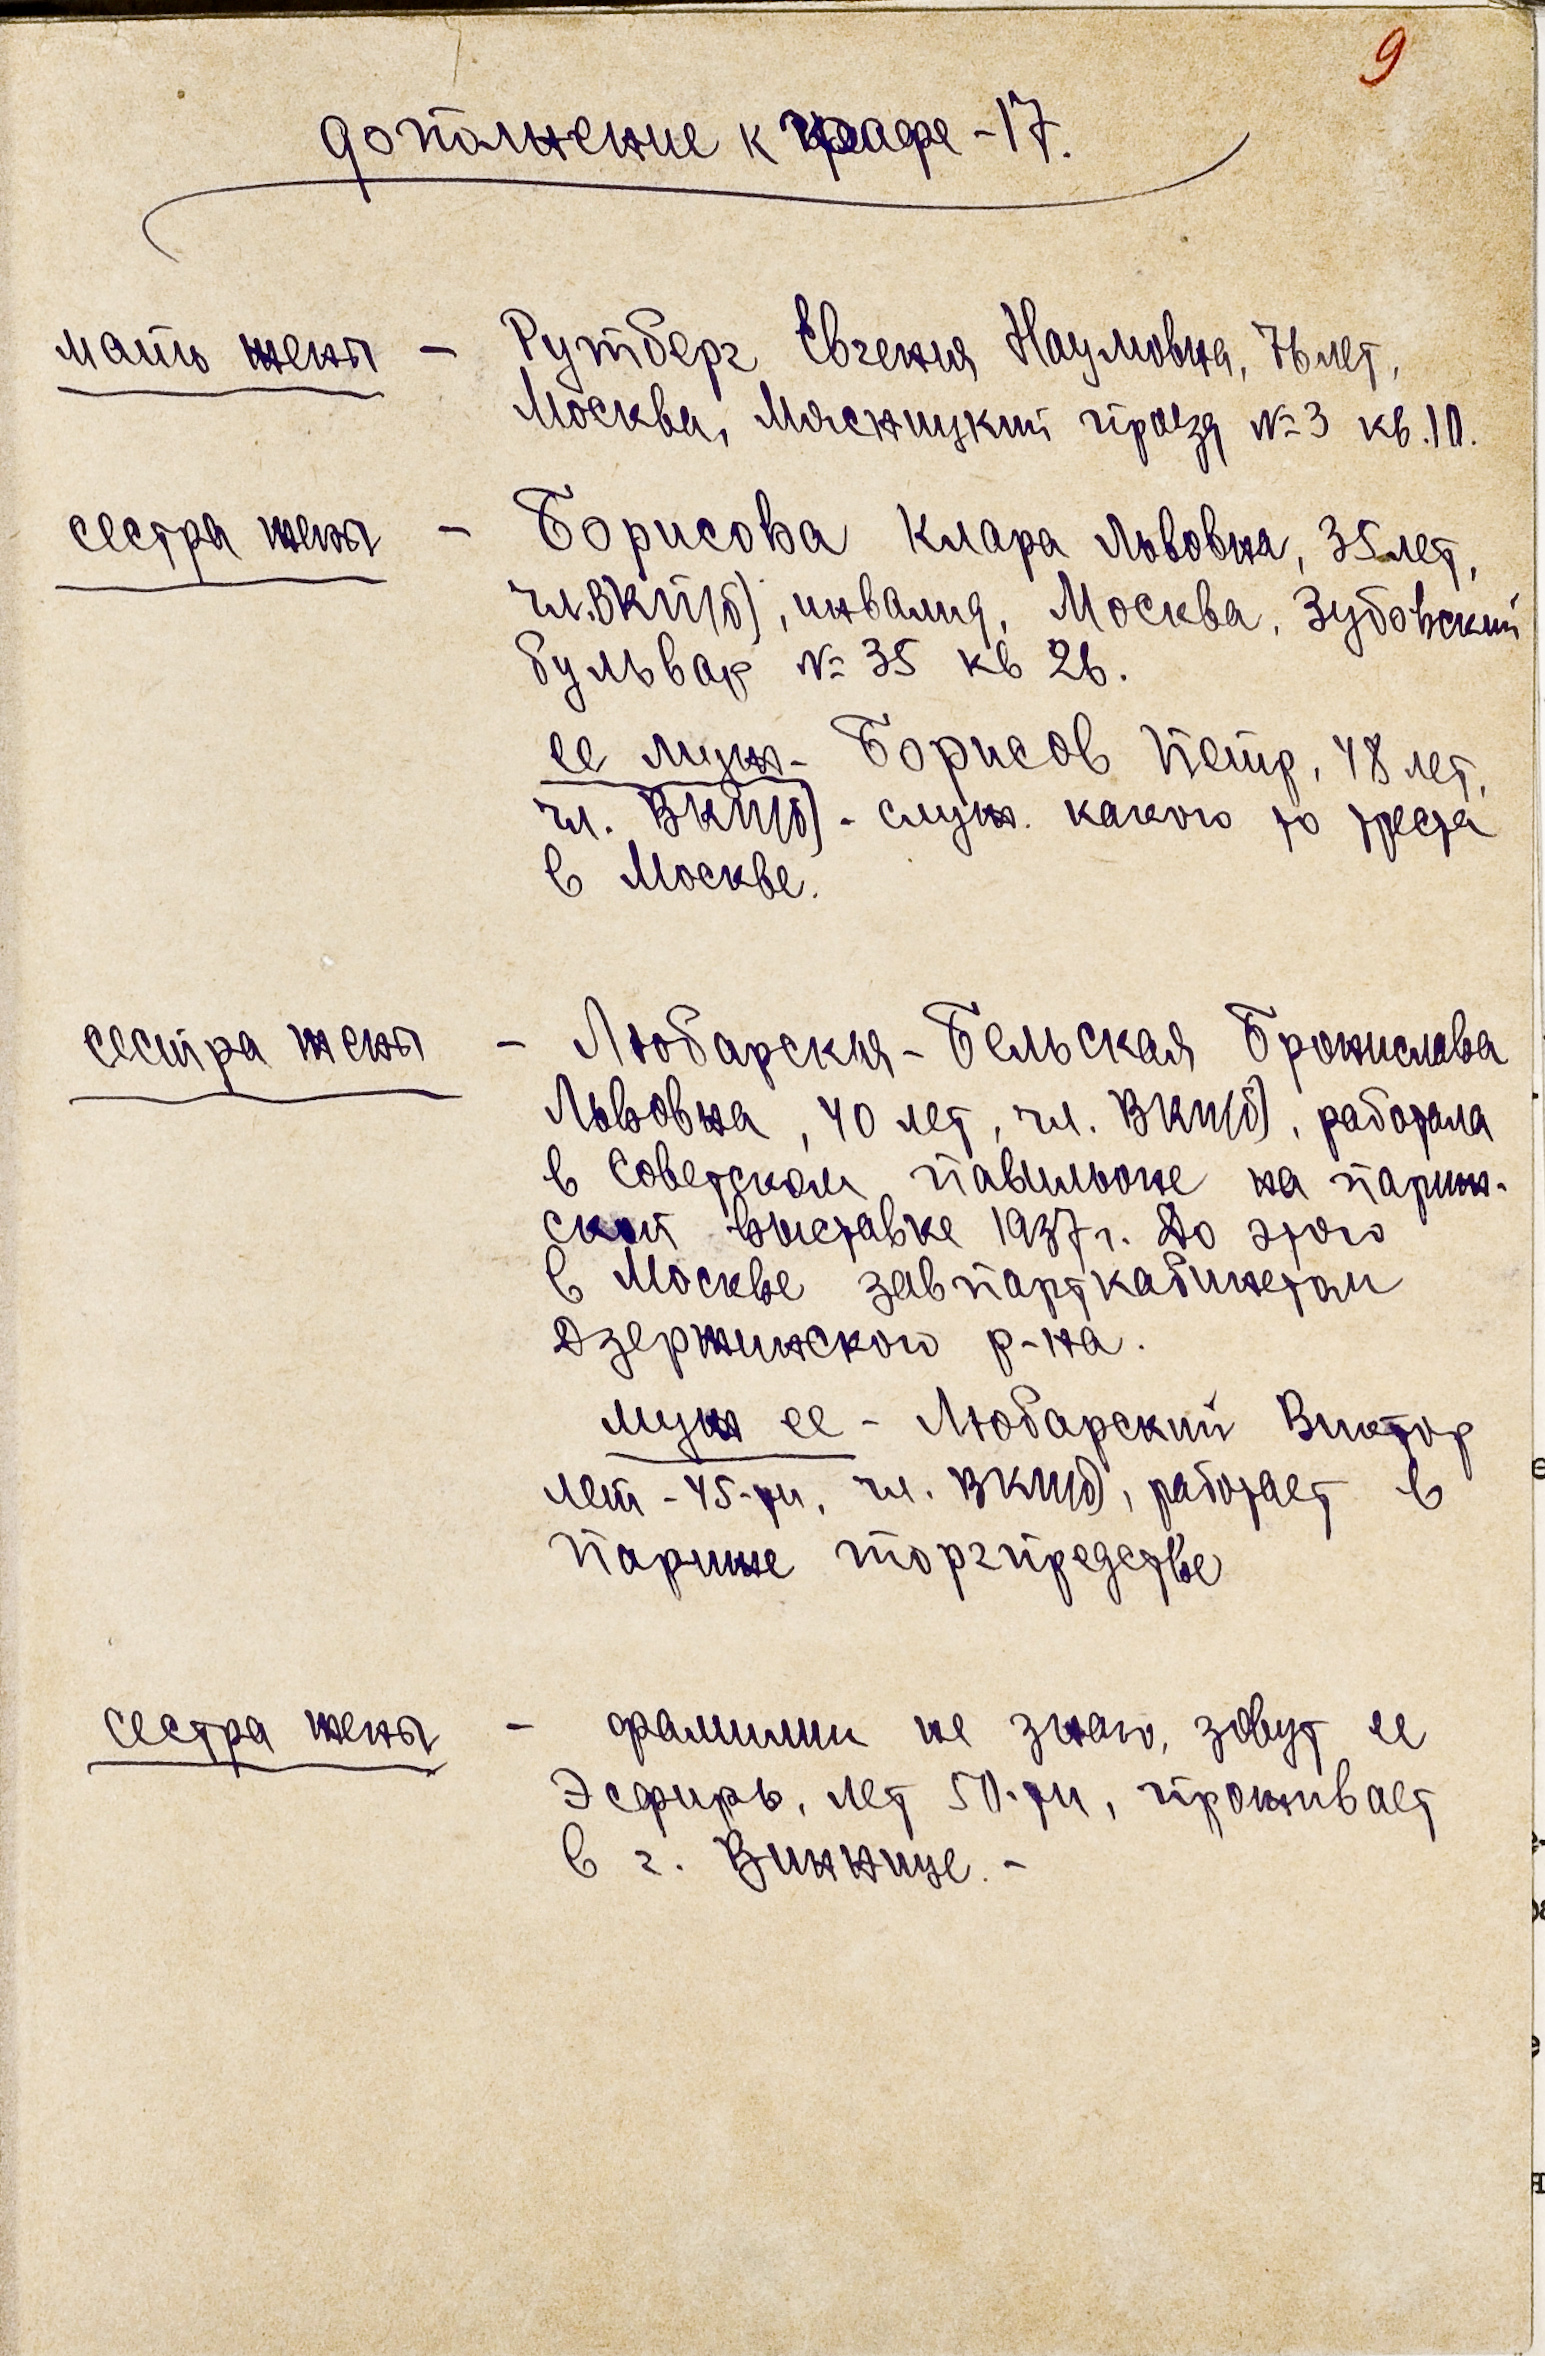 9
дополнение к графе - 17.
мать жены - Рутберг Евгения Наумовна, 76 лет,
Москва, Мясницкий проезд № 3 кв. 10.
сестра жены - Борисова Клара Львовна, 35 лет,
чл. ВКП(б), инвалид, Москва, Зубовский
бульвар № 35 кв 26.
ее муж - Борисов Петр, 48 лет,
чл. ВКП(б) - служ. какого то треста
в Москве.
сестра жены - Любарская-Бельская Бронислава
Львовна, 40 лет, чл. ВКП(б), работала
в Советском павильоне на париж-
ской выставке 1937 г. До этого
в Москве завпарткабинетом
Дзержинского р-на.
муж ее - Любарский Виктор
лет - 45-ти, чл. ВКП(б), работает в
Париже торгпредстве
сестра жены - фамилии не знаю, зовут ее
Эсфирь, лет 50-ти, проживает
в г. Виннице. -